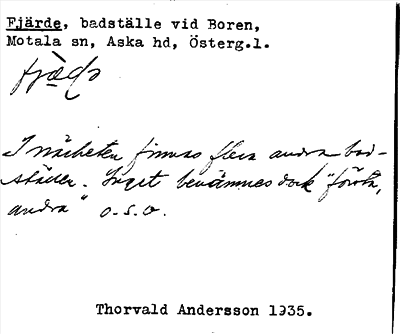 Fjärde, badställe vid Boren,
Motala sn, Aska hd, Österg.l.
I närheten finnas flera andra bad-
ställen. Inget benämnes dock "första,
andra" o.s.v.
Thorvald Andersson 1935.